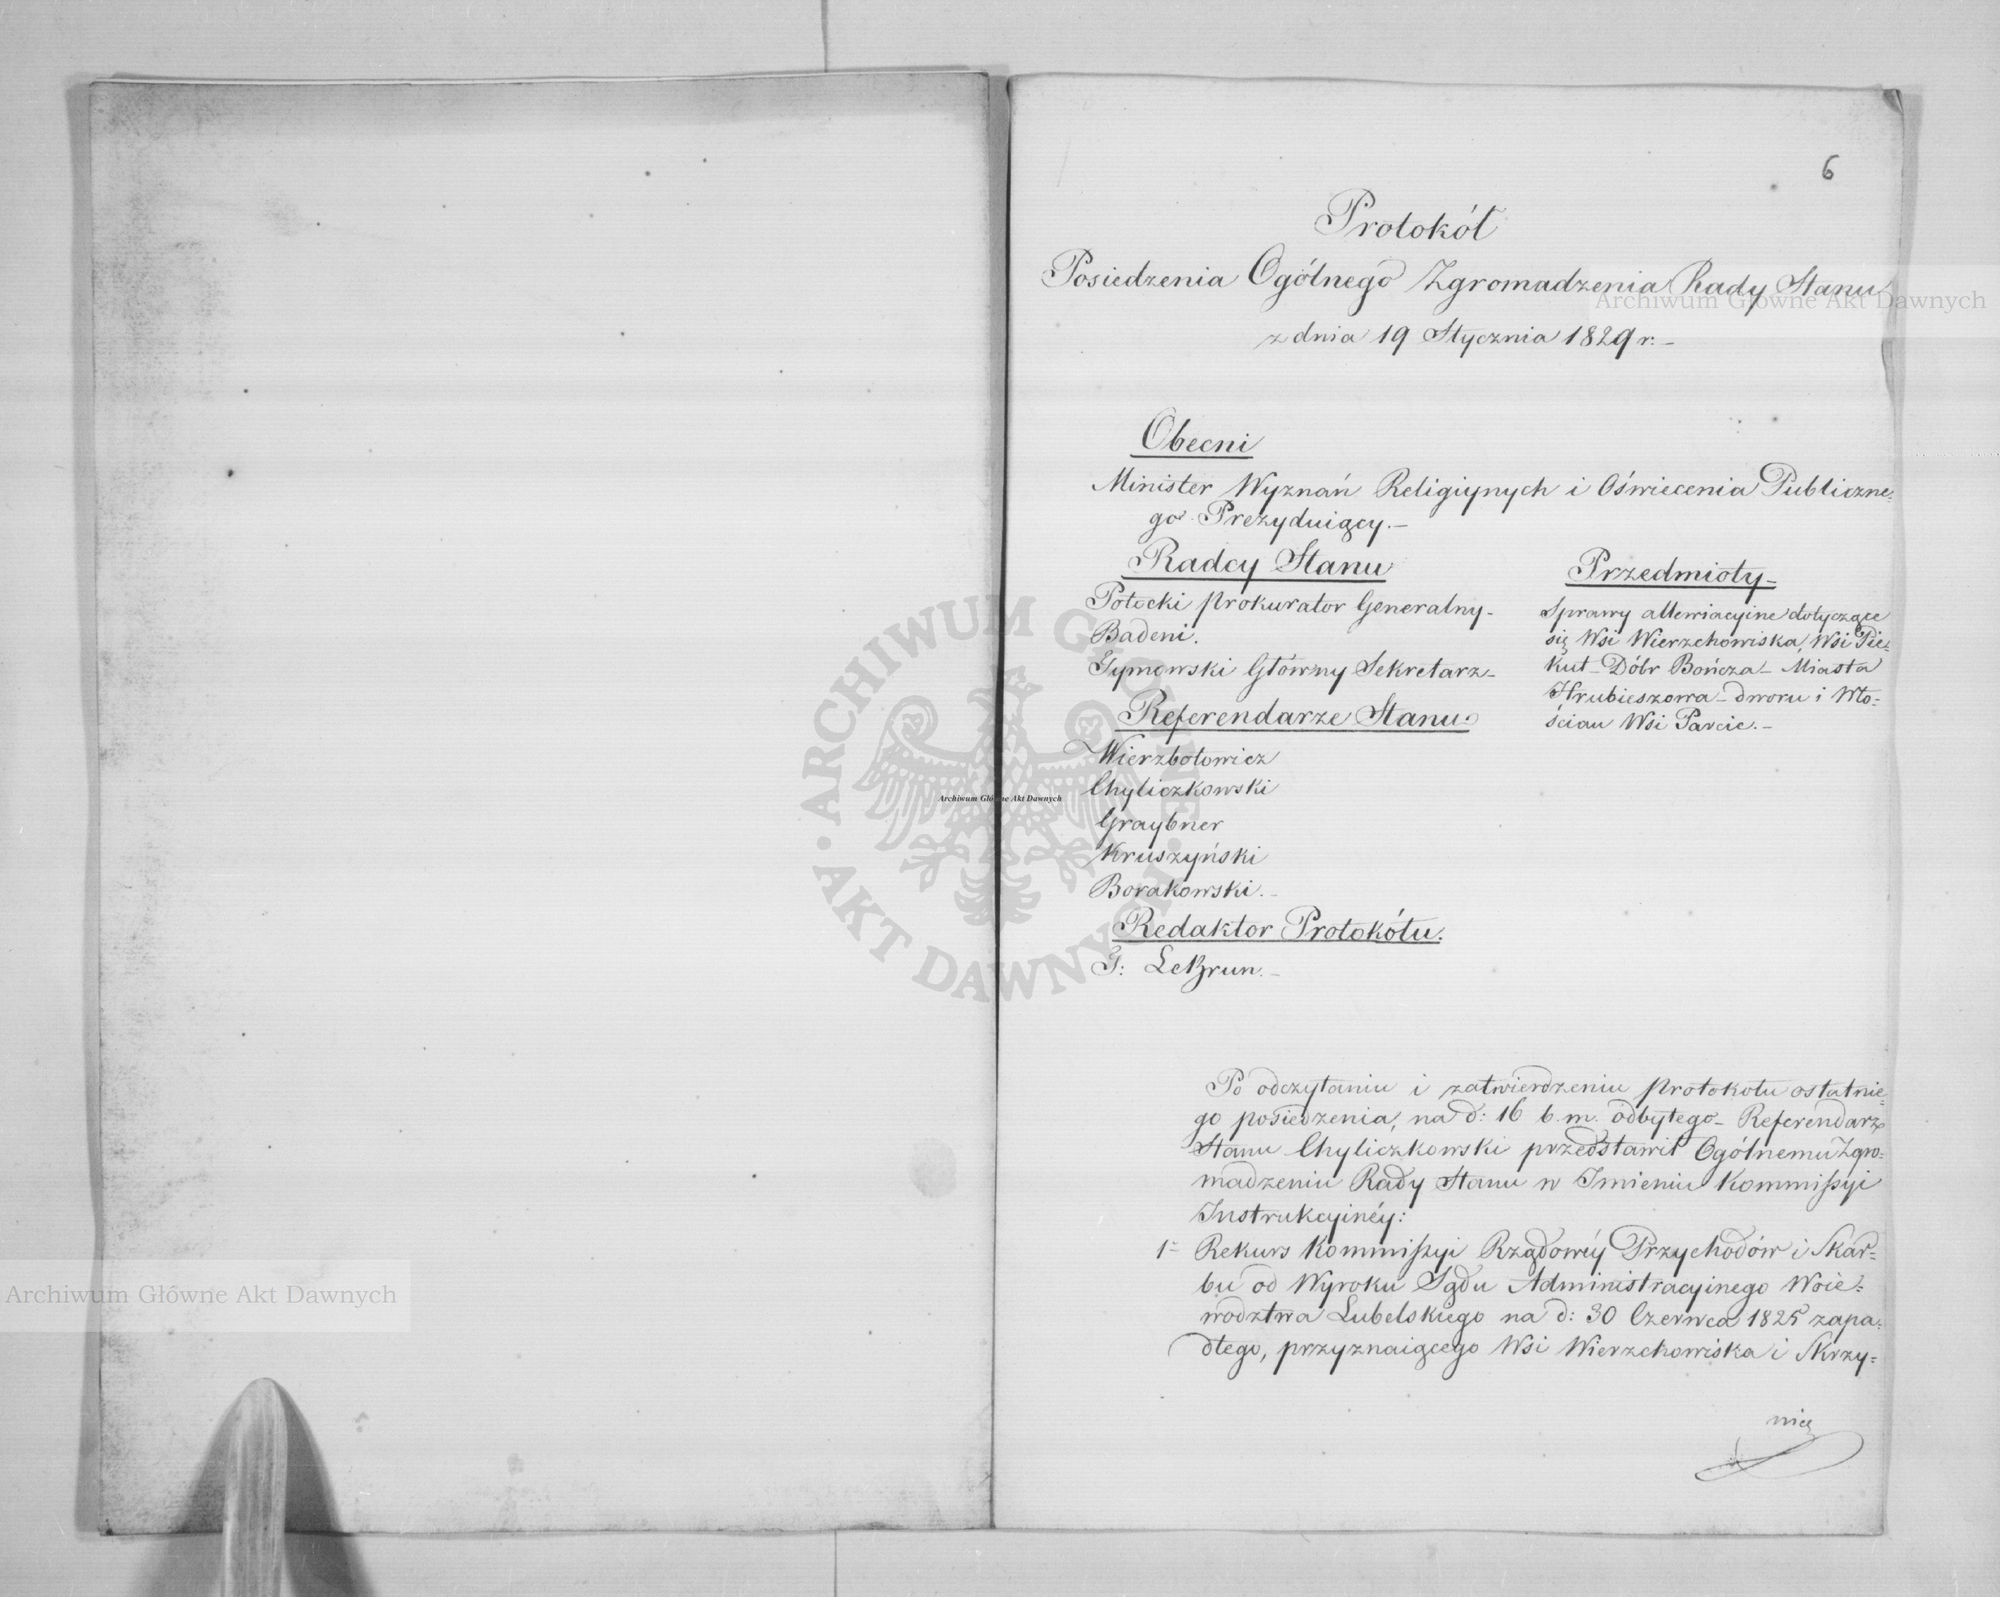 6
Protokół
Posiedzenia Ogólnego Zgromadzenia Rady Stanu
z dnia 19 Stycznia 1829 r: -
Obecni
Minister Wyznań Religiynych i Oświecenia Publiczne=
go Prezyduiący. -
Radcy Stanu
Potocki Prokurator Generalny -
Badeni.
Tymowski Główny Sekretarz -
Referendarze Stanu
Wierzbołowicz
Chyliczkowski
Graybner
Kruszyński
Borakowski. -
Redaktor Protokółu.
G: LeBrun. -
Przedmioty -
Sprawy allewiacyine dotyczące
się Wsi Wierzchowiska, Wsi Pie=
kut - Dóbr Bończa - Miasta
Hrubieszowa - dworu i Wło=
ścian Wsi Parcie. -
Po odczytaniu i zatwierdzeniu protokołu ostatnie=
go posiedzenia, na d: 16 b. m. odbytego - Referendarz
Stanu Chyliczkowski przedstawił Ogólnemu Zgro=
madzeniu Rady Stanu w Imieniu Kommissyi
Instrukcyinéy:
1- Rekurs Kommissyi Rządowéy Przychodów i Skar=
bu od Wyroku Sądu Administracyinego Woie=
wodztwa Lubelskiego na d: 30 Czerwca 1825 zapa=
dłego, przyznaiącego Wsi Wierzchowiska i Skrzy=
nice
Archiwum Główne Akt Dawnych
Archiwum Główne Akt Dawnych
Archiwum Główne Akt Dawnych
ARCHIWUM GŁÓWNE AKT DAWNYCH